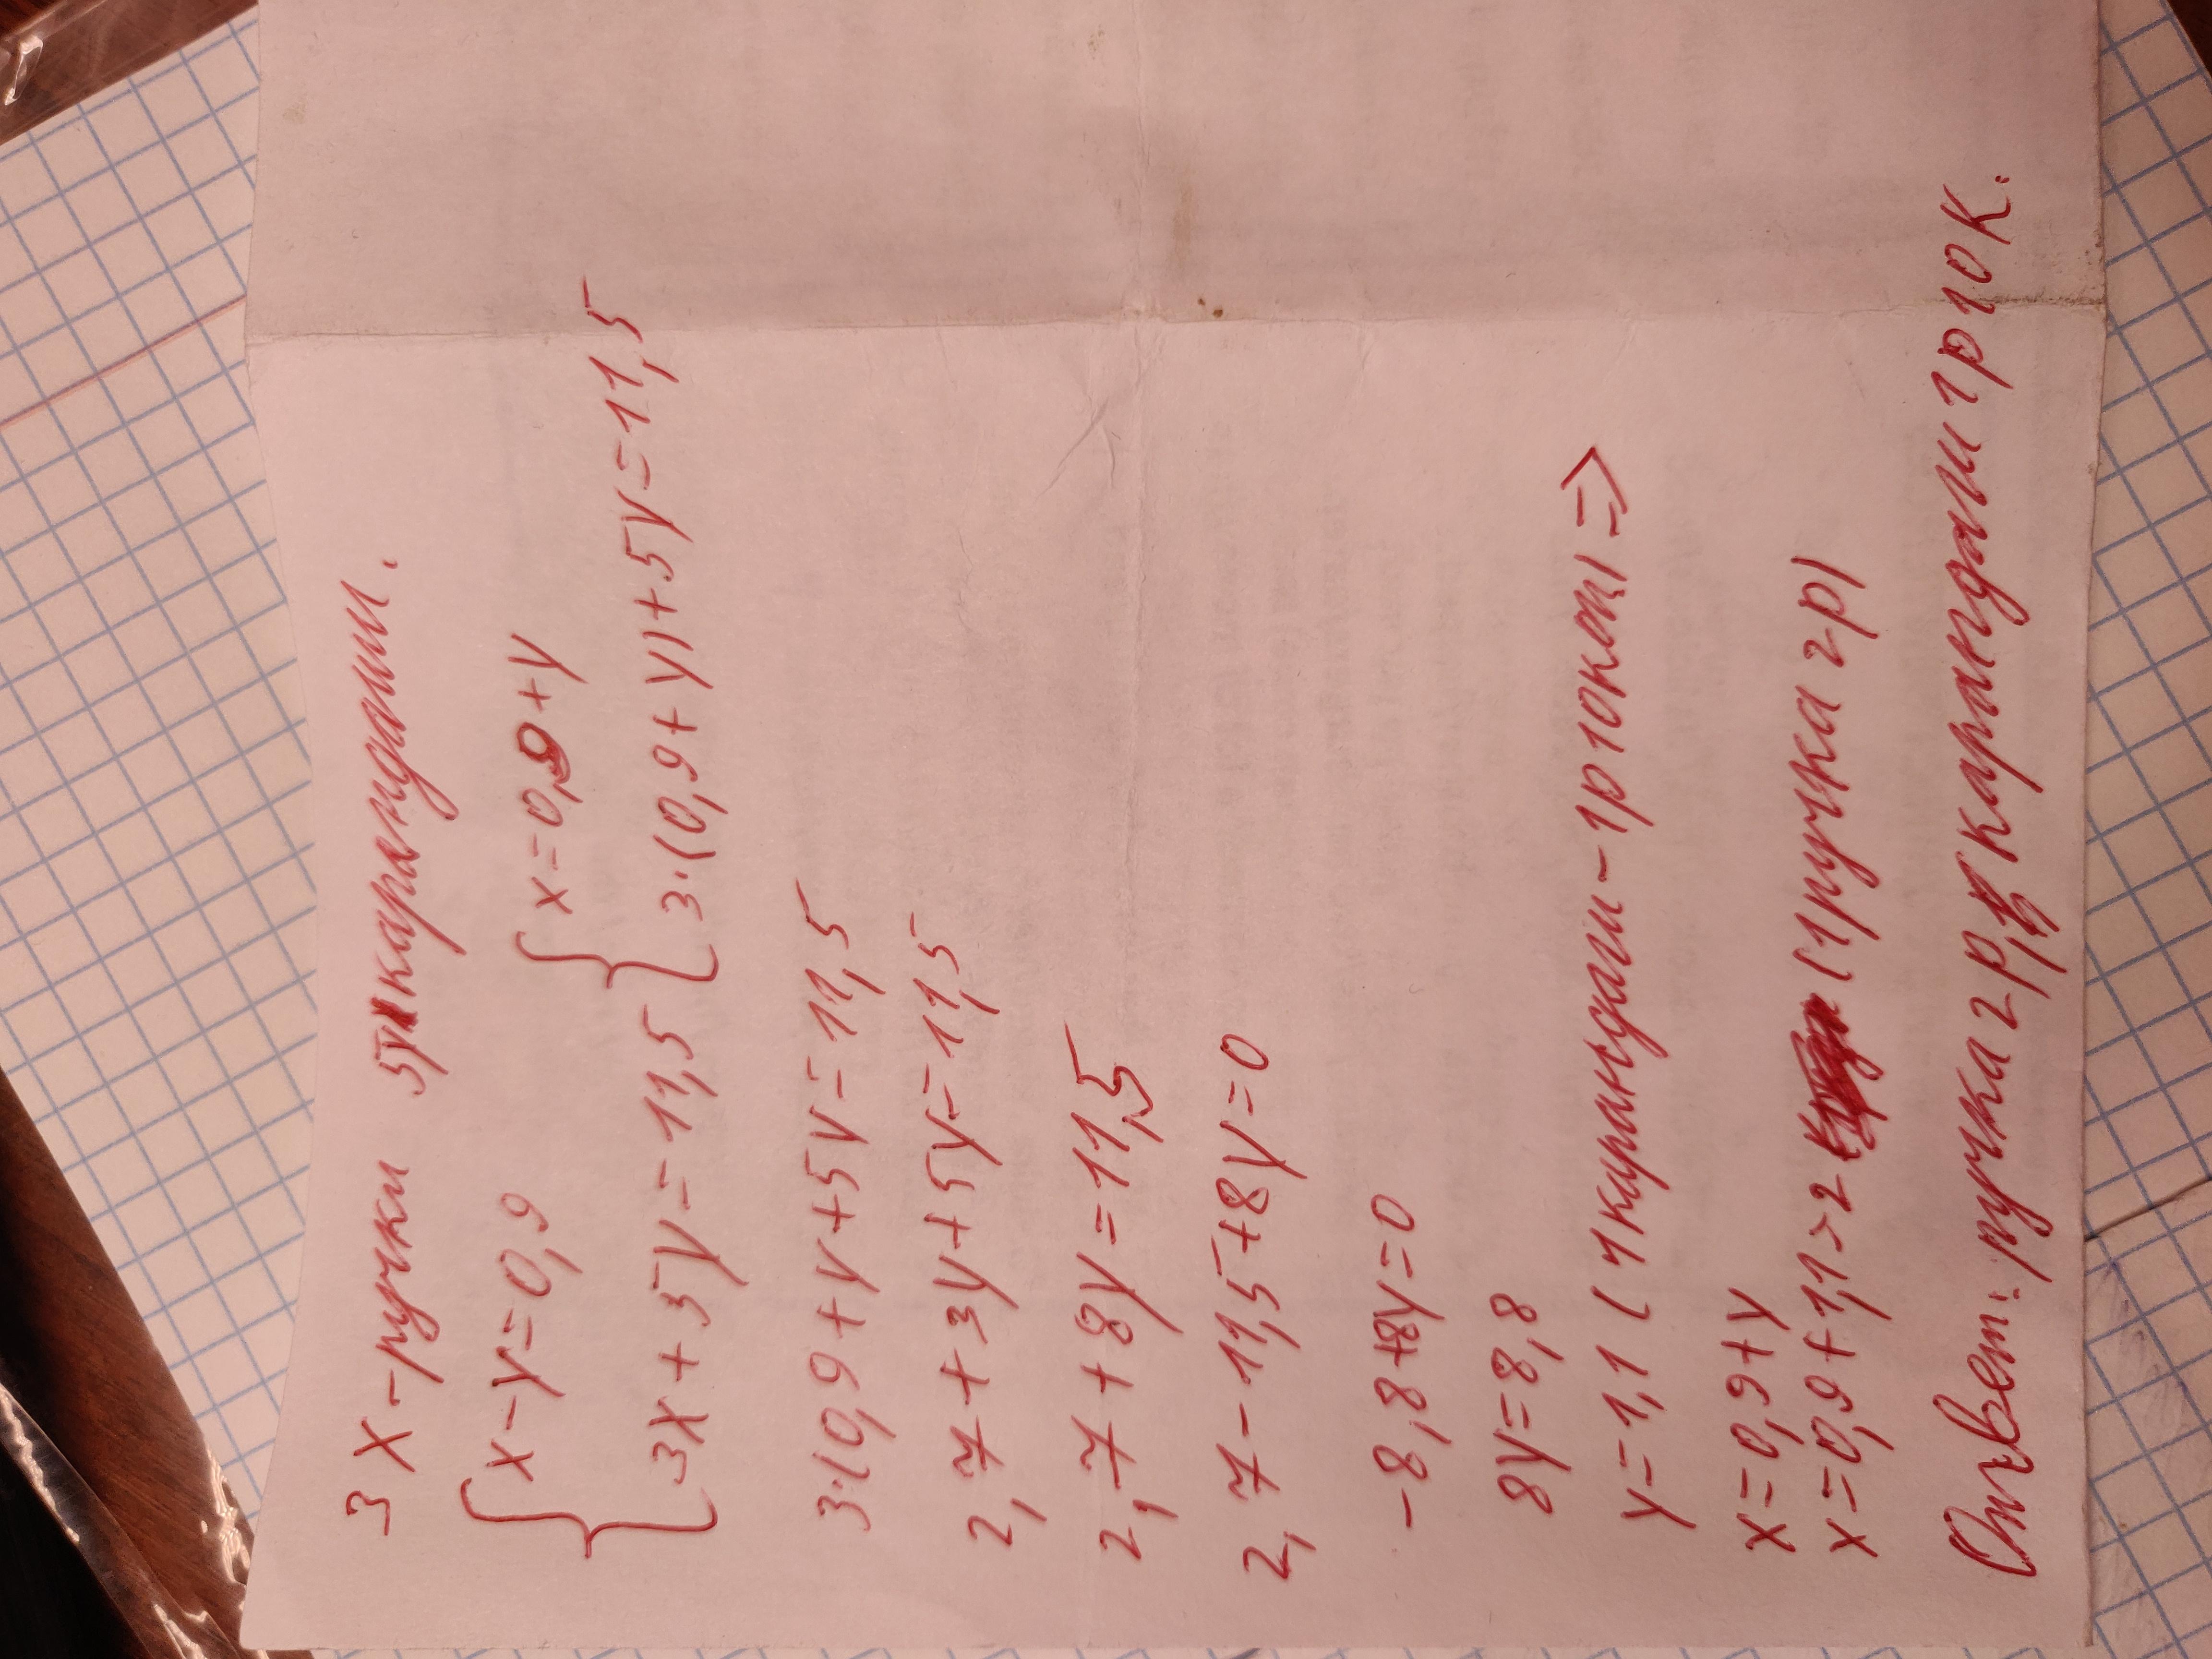 3 x - ручки 5y карандаши.
{ x - y = 0,9 { x = 0,9 + y
3x + 5y = 11,5 3·(0,9 + y) + 5y = 11,5
3·(0,9 + y + 5y = 11,5
2,7 + 3y + 5y = 11,5
2,7 + 8y = 11,5
2,7 - 11,5 + 8y = 0
-8,8 + 8y = 0
8y = 8,8
y = 1,1 (1 карандаш - 1р 10 коп) =>
x = 0,9 + y
x = 0,9 + 1,1 > 2 (1 ручка 2р)
Ответ: ручка 2р, карандаш 1р 10к.